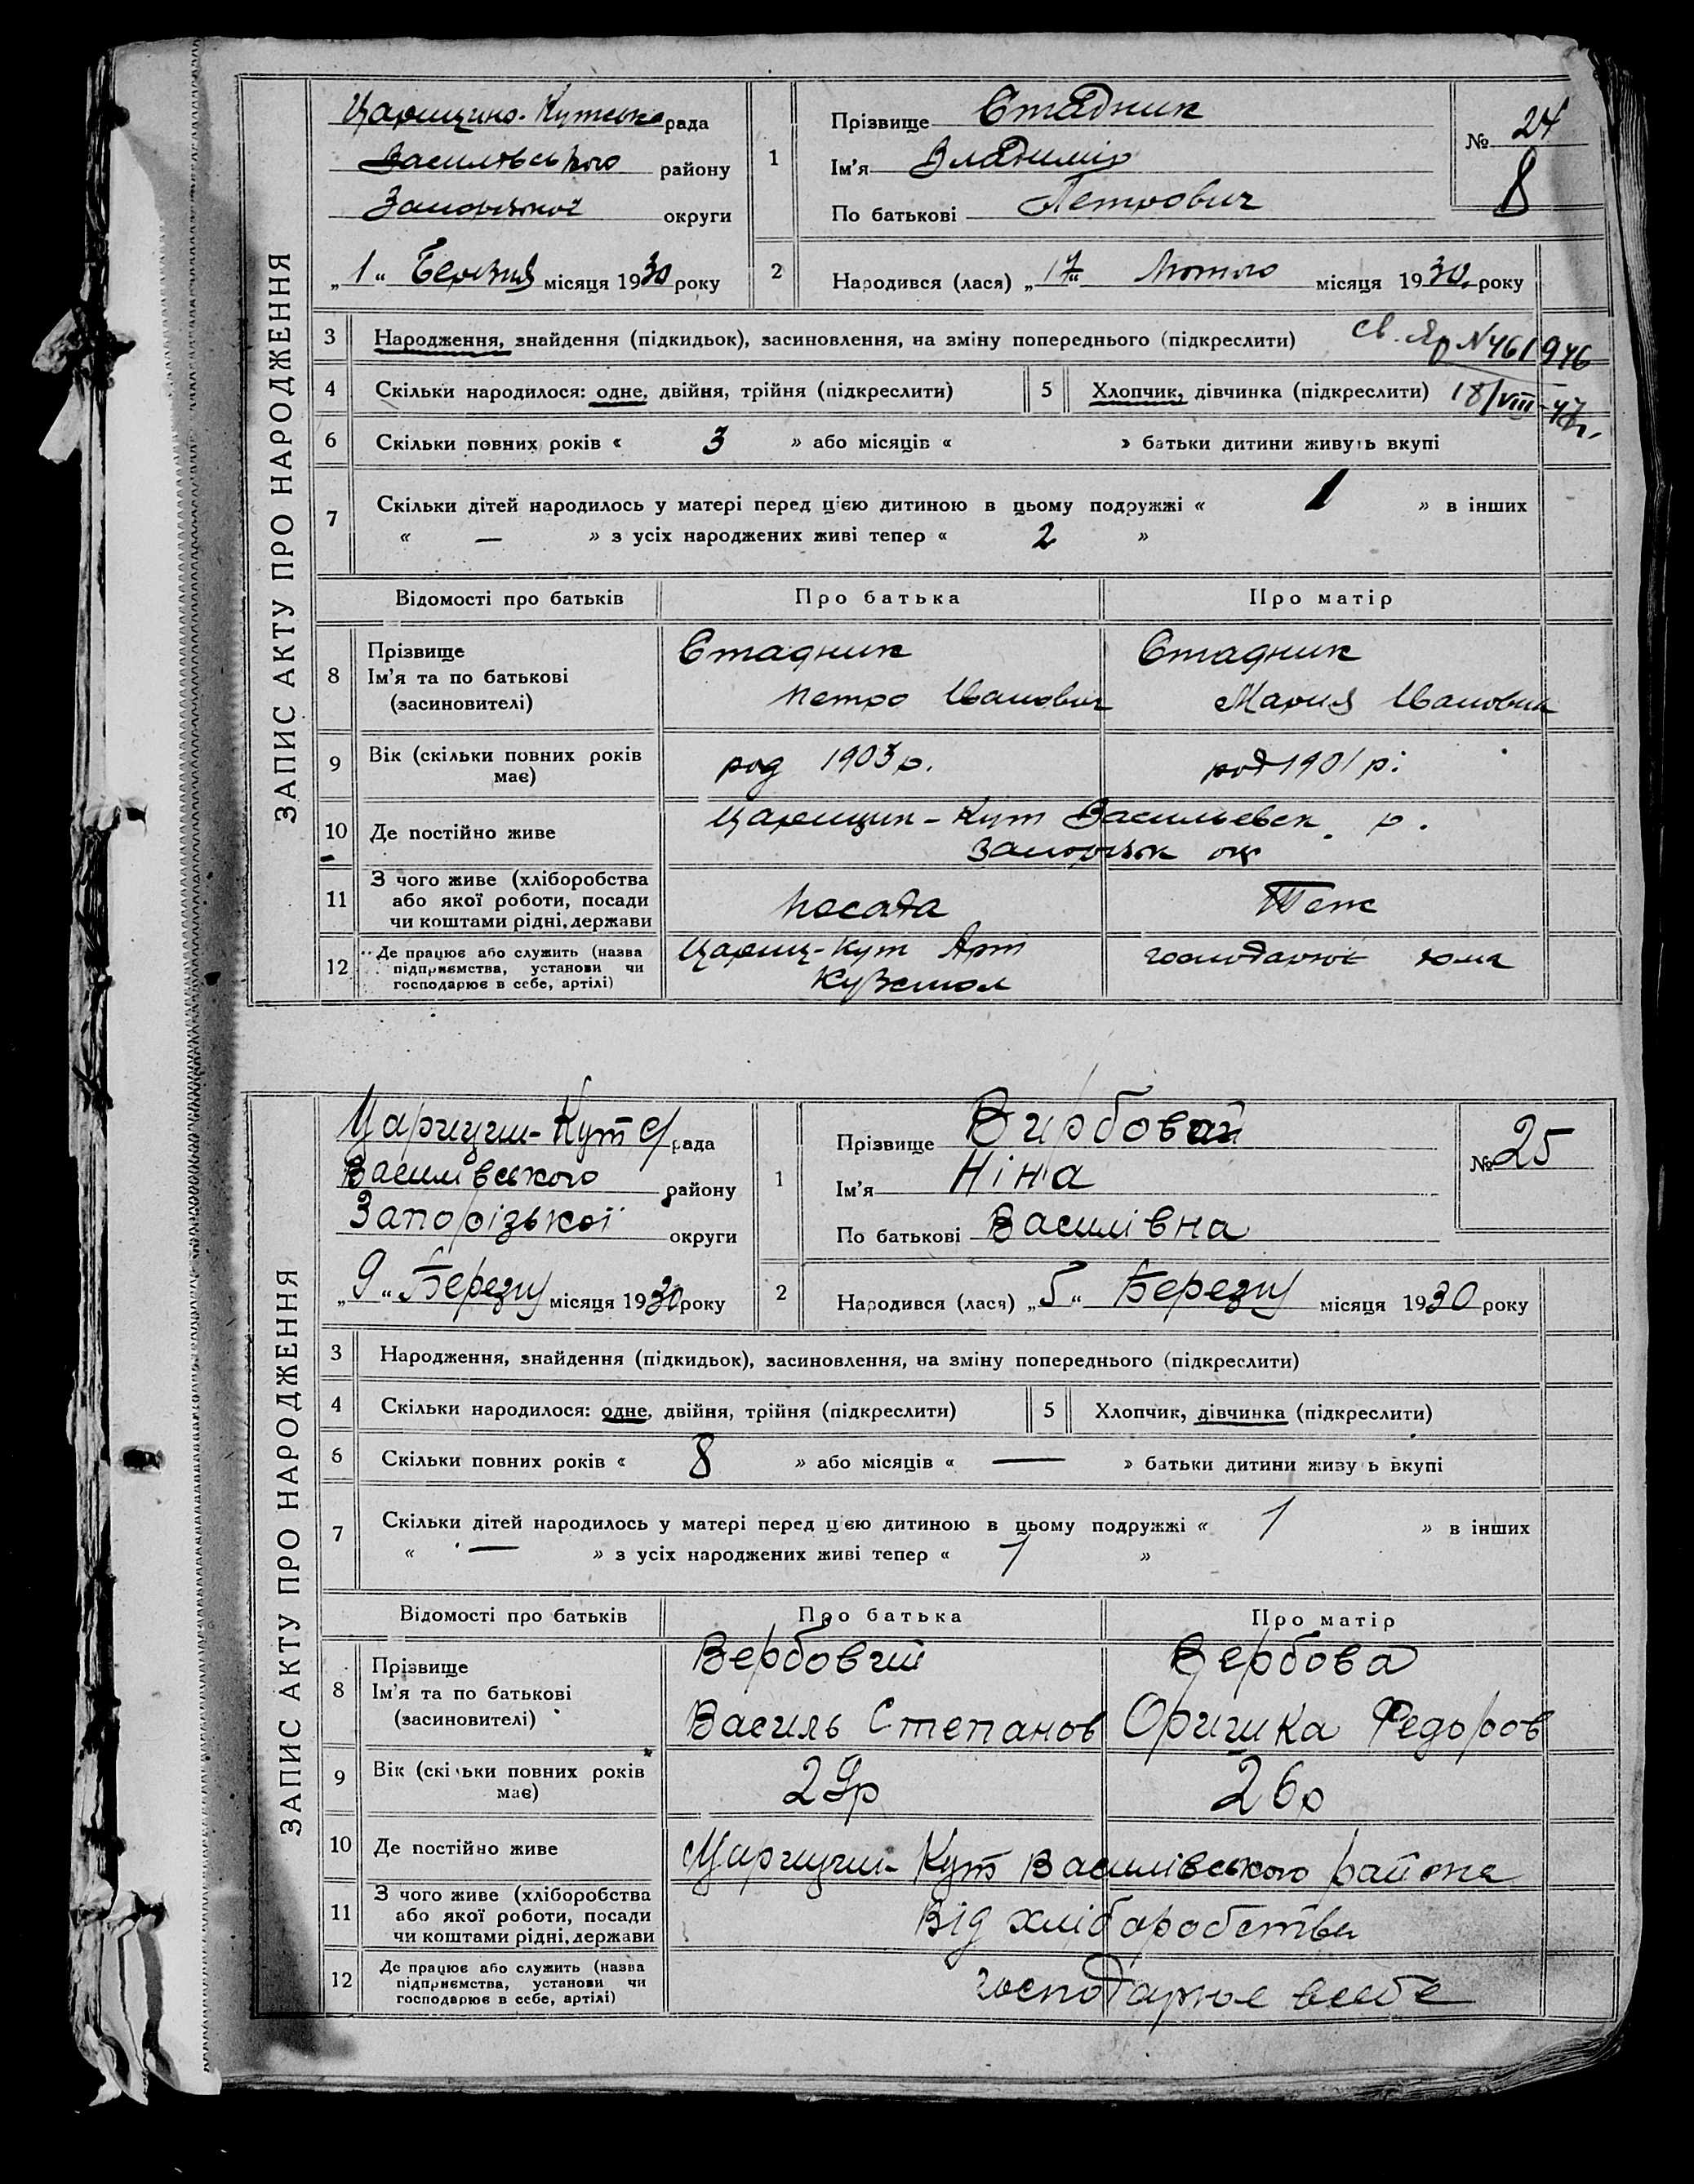 ЗАПИС АКТУ ПРО НАРОДЖЕННЯ
Царицино-Кутська рада
Василівського району
Запорізької округи
„1“ Березня місяця 1930 року
1
Прізвище Стадник
Ім'я Владимір
По батькові Петрович
№ 24
8
2
Народився (лася) „17“ Лютого місяця 1930 року
3 Народження, знайдення (підкидьок), засиновлення, на зміну попереднього (підкреслити)
св. ЯР № 461976
18/VIII-47г.
4 Скільки народилося: одне, двійня, трійня (підкреслити)
5 Хлопчик, дівчинка (підкреслити)
6 Скільки повних років « 3 » або місяців « » батьки дитини живуть вкупі
7 Скільки дітей народилось у матері перед цією дитиною в цьому подружжі « 1 » в інших
« — » з усіх народжених живі тепер « 2 »
Відомості про батьків Про батька Про матір
8 Прізвище
Ім'я та по батькові
(засиновителі)
Стадник
Петро Іванович
Стадник
Мария Ивановна
9 Вік (скільки повних років
має)
род 1903 р.
род 1901 р.
10 Де постійно живе
Царицин-Кут Васильевск. р.
Запорізьк ок
11 З чого живе (хліборобства
або якої роботи, посади
чи коштами рідні, держави
Посада
Теж
12 Де працює або служить (назва
підприємства, установи чи
господарює в себе, артілі)
Цариц-Кут Арт
господарює дома
ЗАПИС АКТУ ПРО НАРОДЖЕННЯ
Царицин-Кутс рада
Василівського району
Запорізької округи
„9“ Березня місяця 1930 року
1
Прізвище Вирбовай
Ім'я Ніна
По батькові Василівна
№ 25
2
Народився (лася) „5“ Березня місяця 1930 року
3 Народження, знайдення (підкидьок), засиновлення, на зміну попереднього (підкреслити)
4 Скільки народилося: одне, двійня, трійня (підкреслити)
5 Хлопчик, дівчинка (підкреслити)
6 Скільки повних років « 8 » або місяців « — » батьки дитини живу ь вкупі
7 Скільки дітей народилось у матері перед цією дитиною в цьому подружжі « 1 » в інших
« — » з усіх народжених живі тепер « 1 »
Відомості про батьків Про батька Про матір
8 Прізвище
Ім'я та по батькові
(засиновителі)
Вербовий
Василь Степанов
Вербова
Оришка Федоров
9 Вік (скільки повних років
має)
29р
26р
10 Де постійно живе
Царицин-Кут Василівського района
11 З чого живе (хліборобства
або якої роботи, посади
чи коштами рідні, держави
Від хліборобства
12 Де працює або служить (назва
підприємства, установи чи
господарює в себе, артілі)
господарює всебе